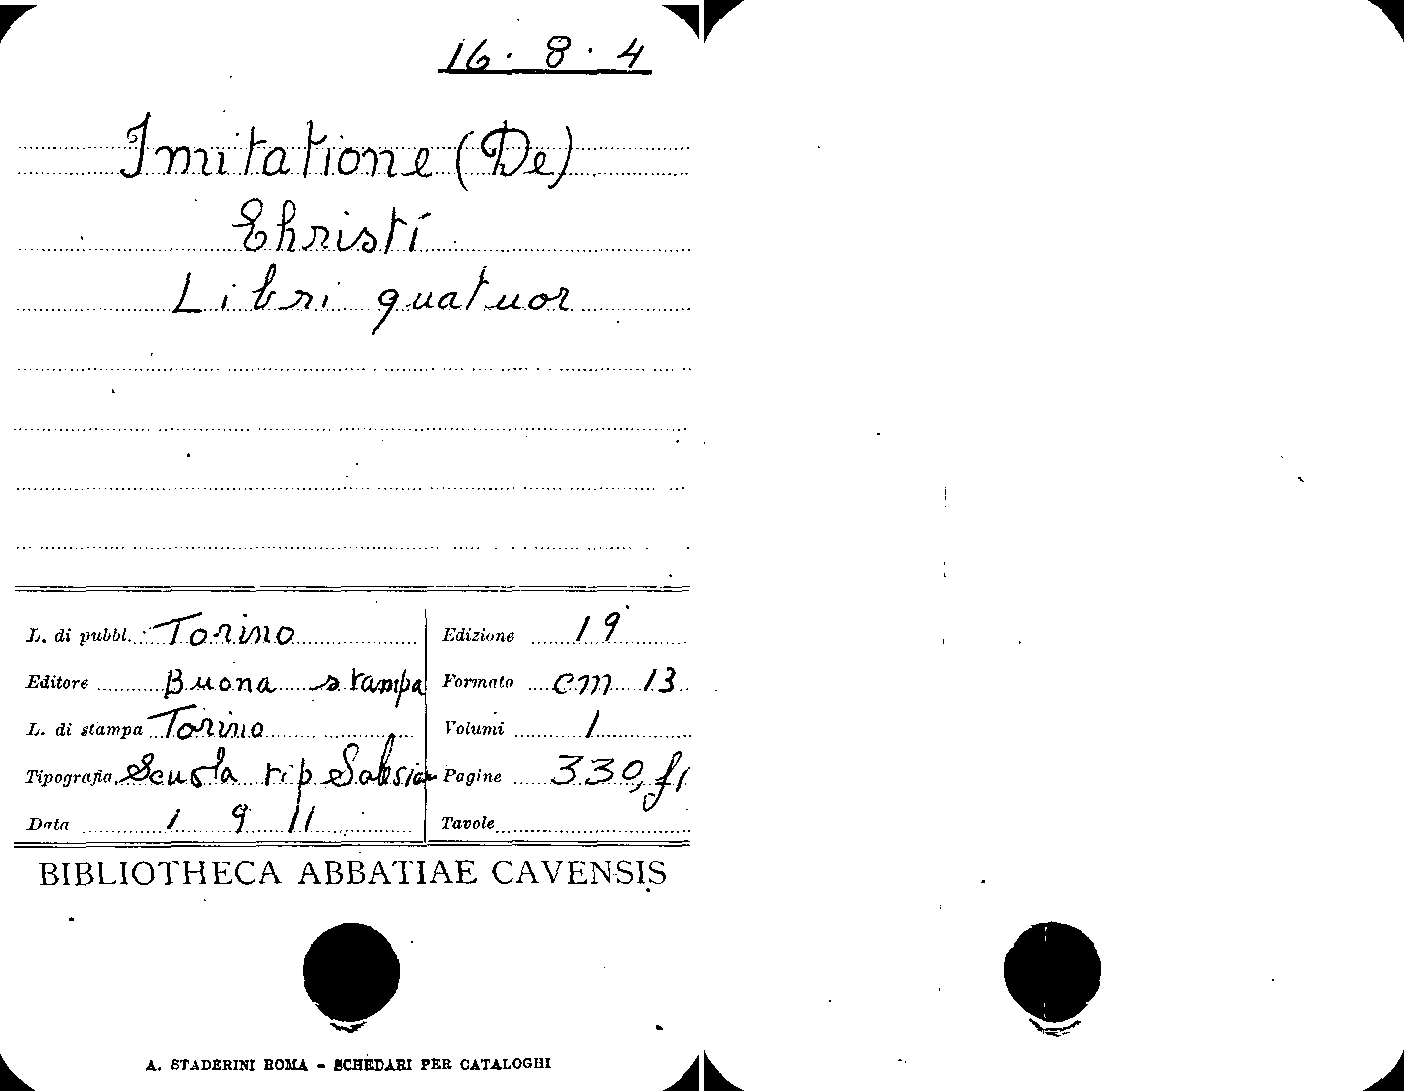 16 . 8 . 4
Imitatione (De)
Christi
Libri quatuor
L. di pubbl. Torino
Edizione 19
Editore Buona stampa
Formato cm 13
L. di stampa Torino
Volumi 1
Tipografia Scuola tip Salesia
Pagine 330, fi
Data 1 9 11
Tavole
BIBLIOTHECA ABBATIAE CAVENSIS
A. STADERINI ROMA - SCHEDARI PER CATALOGHI